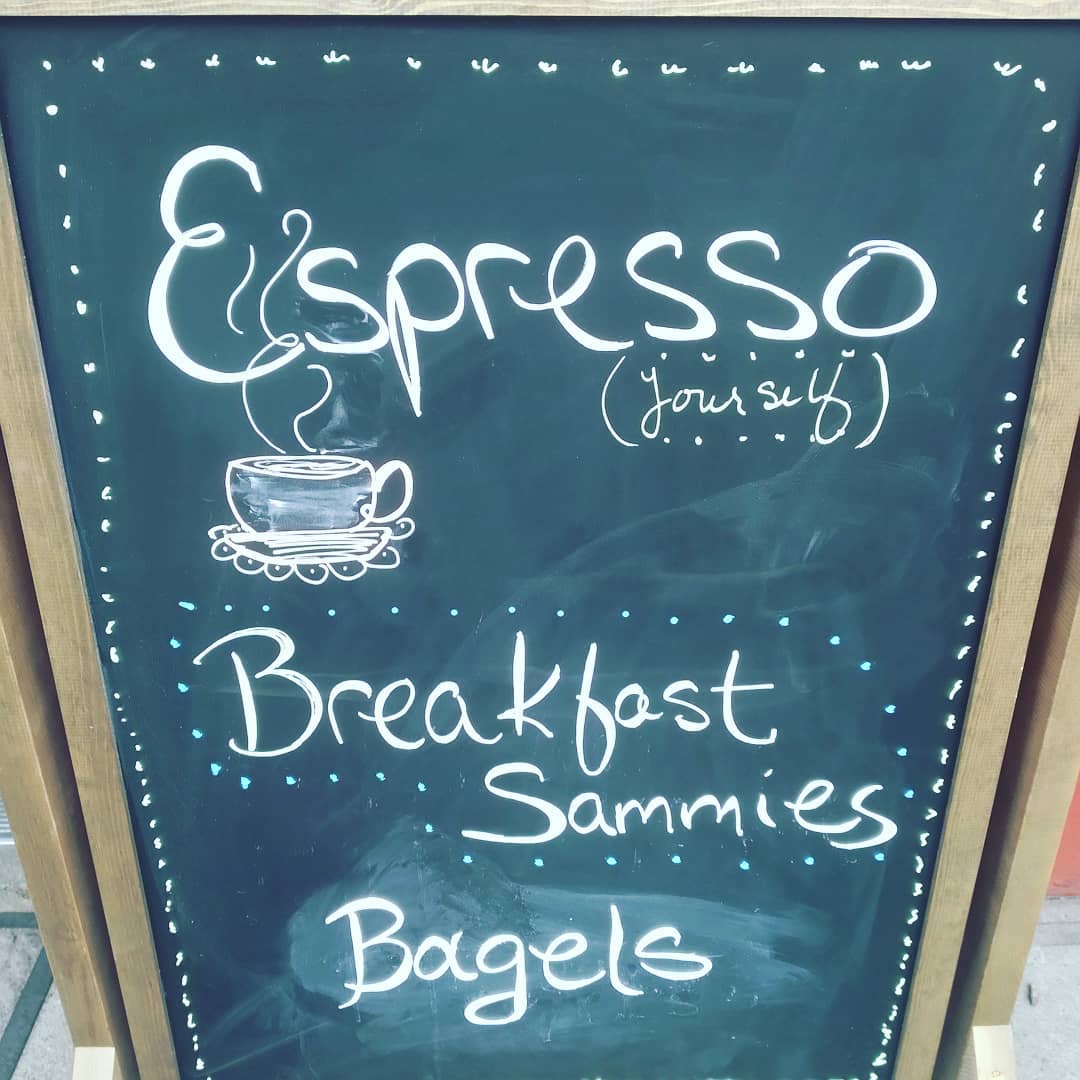 Espresso
(yourself)
Breakfast
Sammies
Bagels